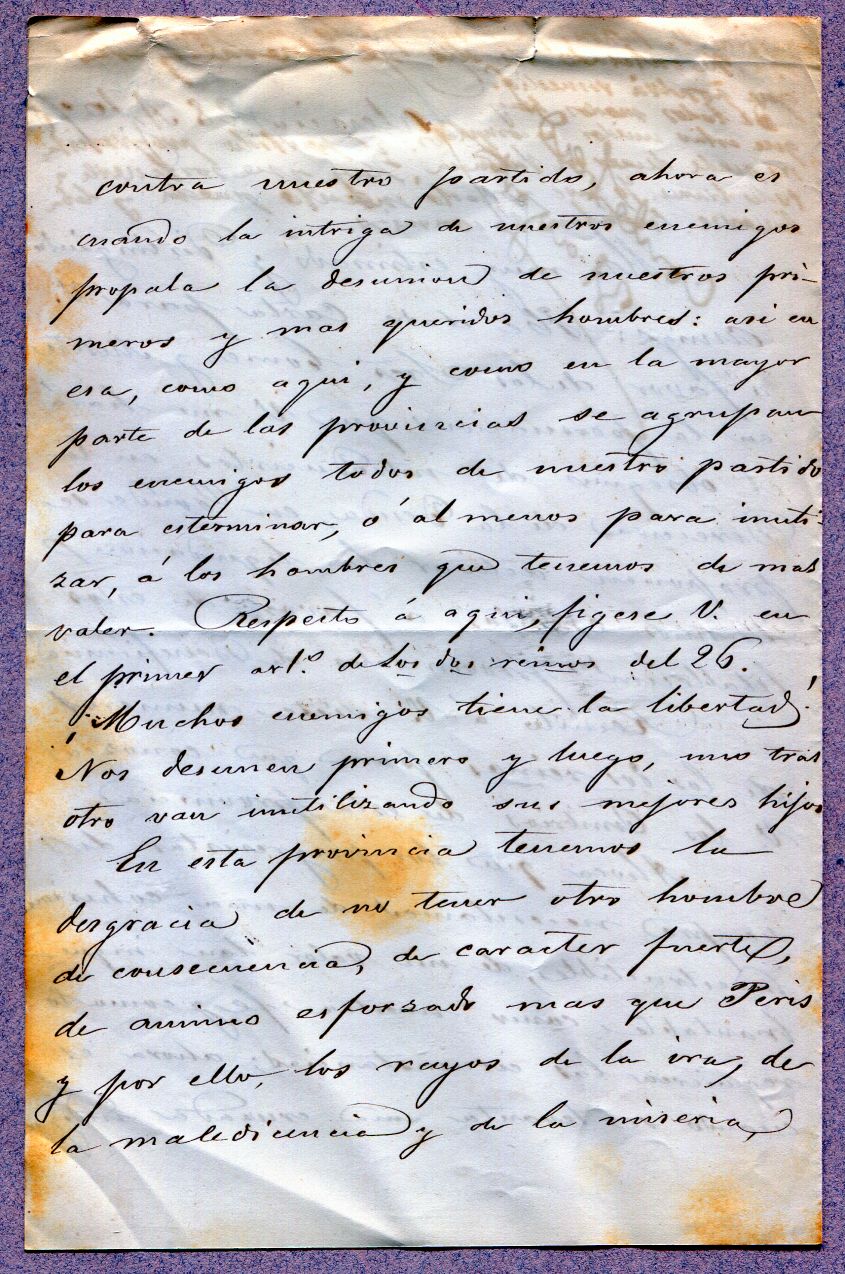 contra nuestro partido, ahora es
cuando la intriga de nuestros enemigos
propala la desunion de nuestros pri-
meros y mas queridos hombres: asi en
esa, como aqui, y como en la mayor
parte de las provincias se agrupan
los enemigos todos de nuestro partido
para esterminar, ó al menos para inuti-
zar, á los hombres que tenemos de mas
valer. Respecto á aqui, figese V. en
el primer artº de Los dos reinos del 26.
¡Muchos enemigos tiene la libertad!
Nos desunen primero y luego, uno tras
otro van inutilizando sus mejores hijos
En esta provincia tenemos la
desgracia de no tener otro hombre
de consecuencia, de caracter fuerte,
de animo esforzado mas que Peris
y por ello, los rayos de la ira, de
la maledicencia y de la miseria,